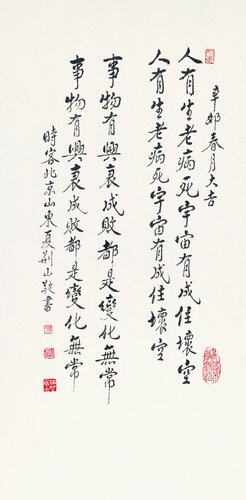 辛卯春月大吉
人有生老病死宇宙有成住壞空
人有生老病死宇宙有成住壞空
事物有興衰成敗都是變化無常
事物有興衰成敗都是變化無常
時客北京山東夏荊山敬書